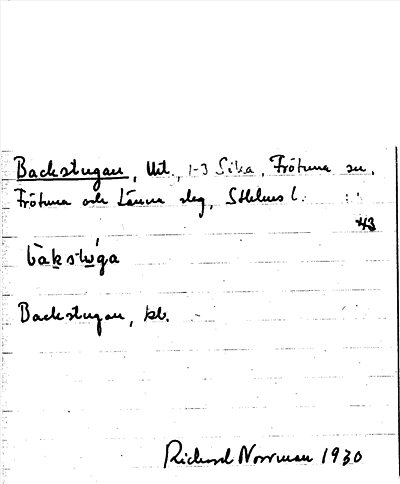 Backstugan, Utt., 1-3 Sika, Frötuna sn,
Frötuna och Länna slag, Sthlms l.
43
bàkstu̲´ga
Backstugan, kb.
Richard Norrman 1930